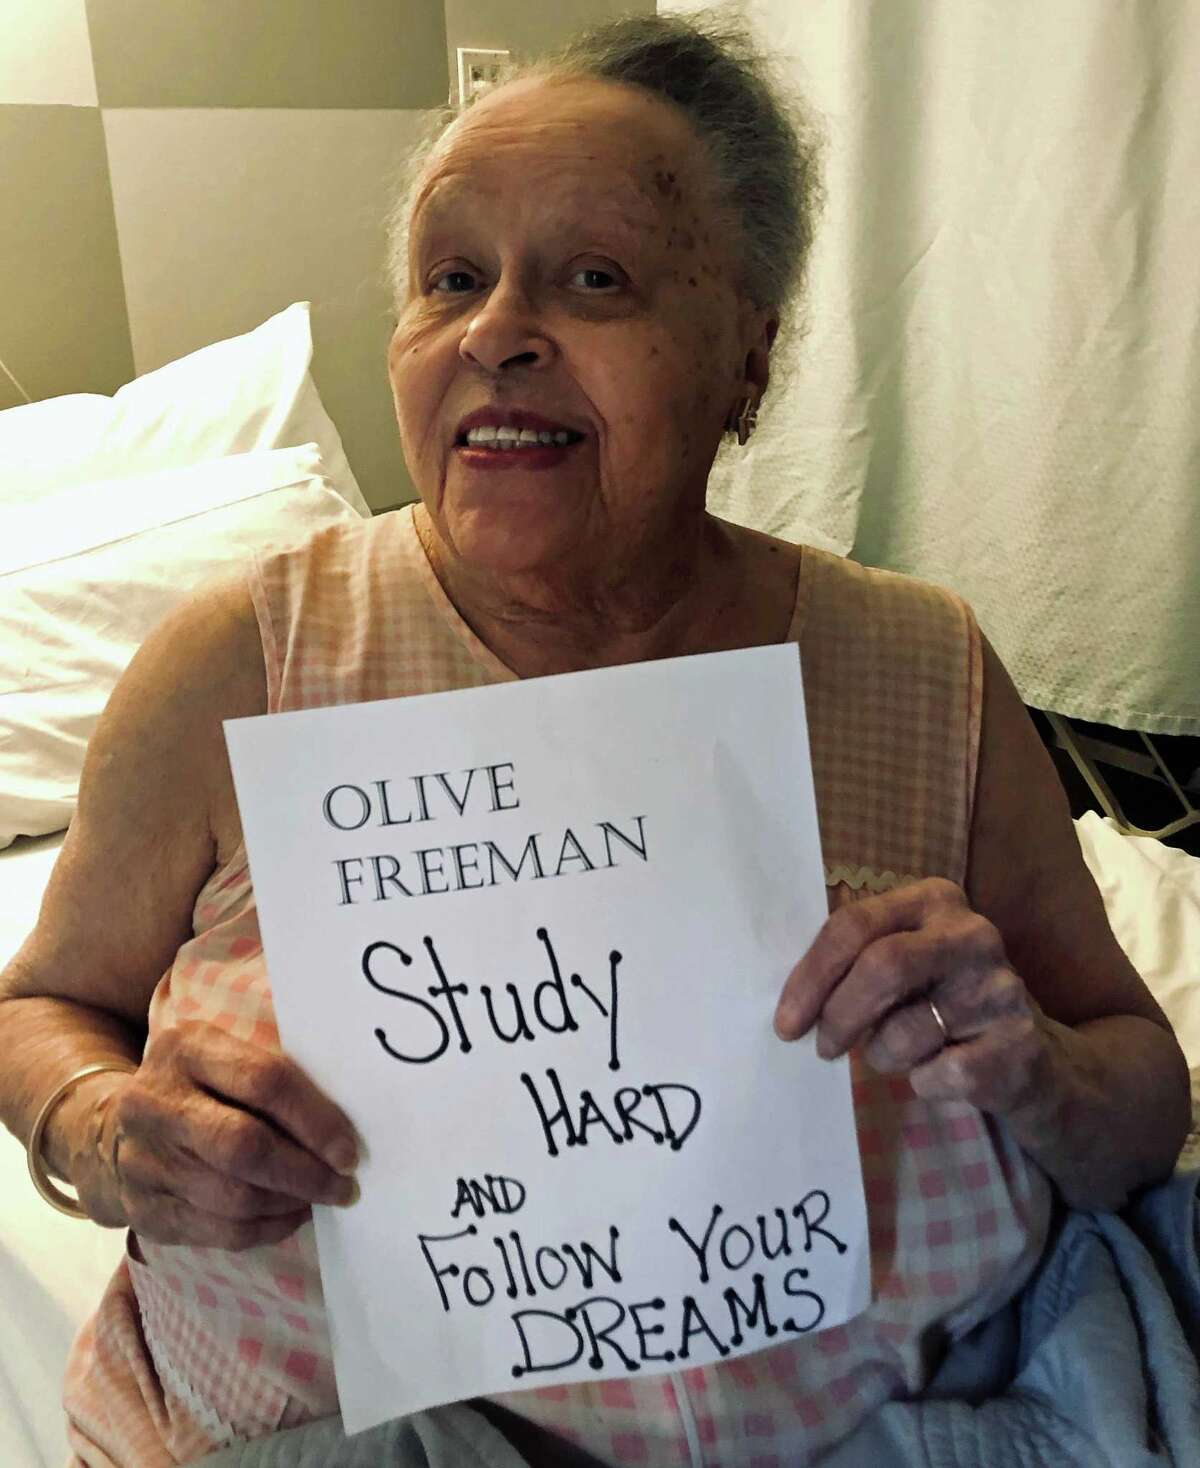 OLIVE
FREEMAN
Study
HARD
AND
Follow YOUR
DREAMS